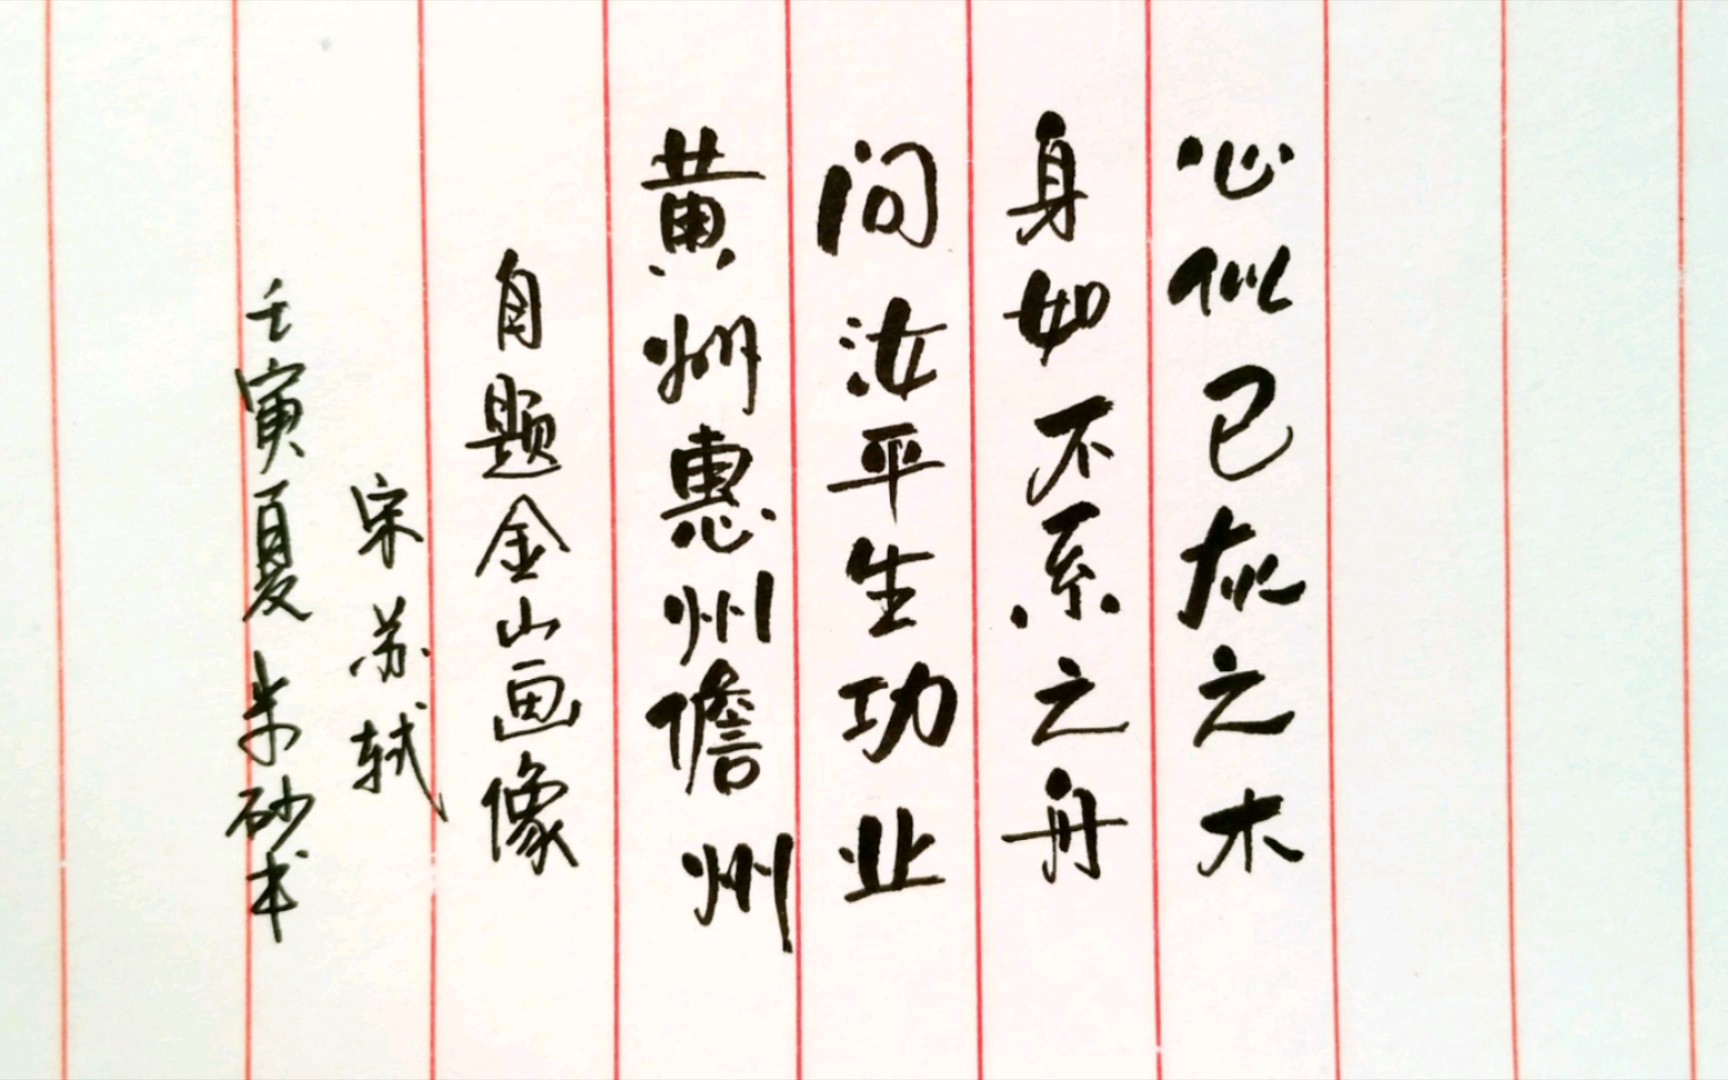 心似已灰之木
身如不系之舟
问汝平生功业
黄州惠州儋州
自题金山画像
宋苏轼
壬寅夏朱砂书